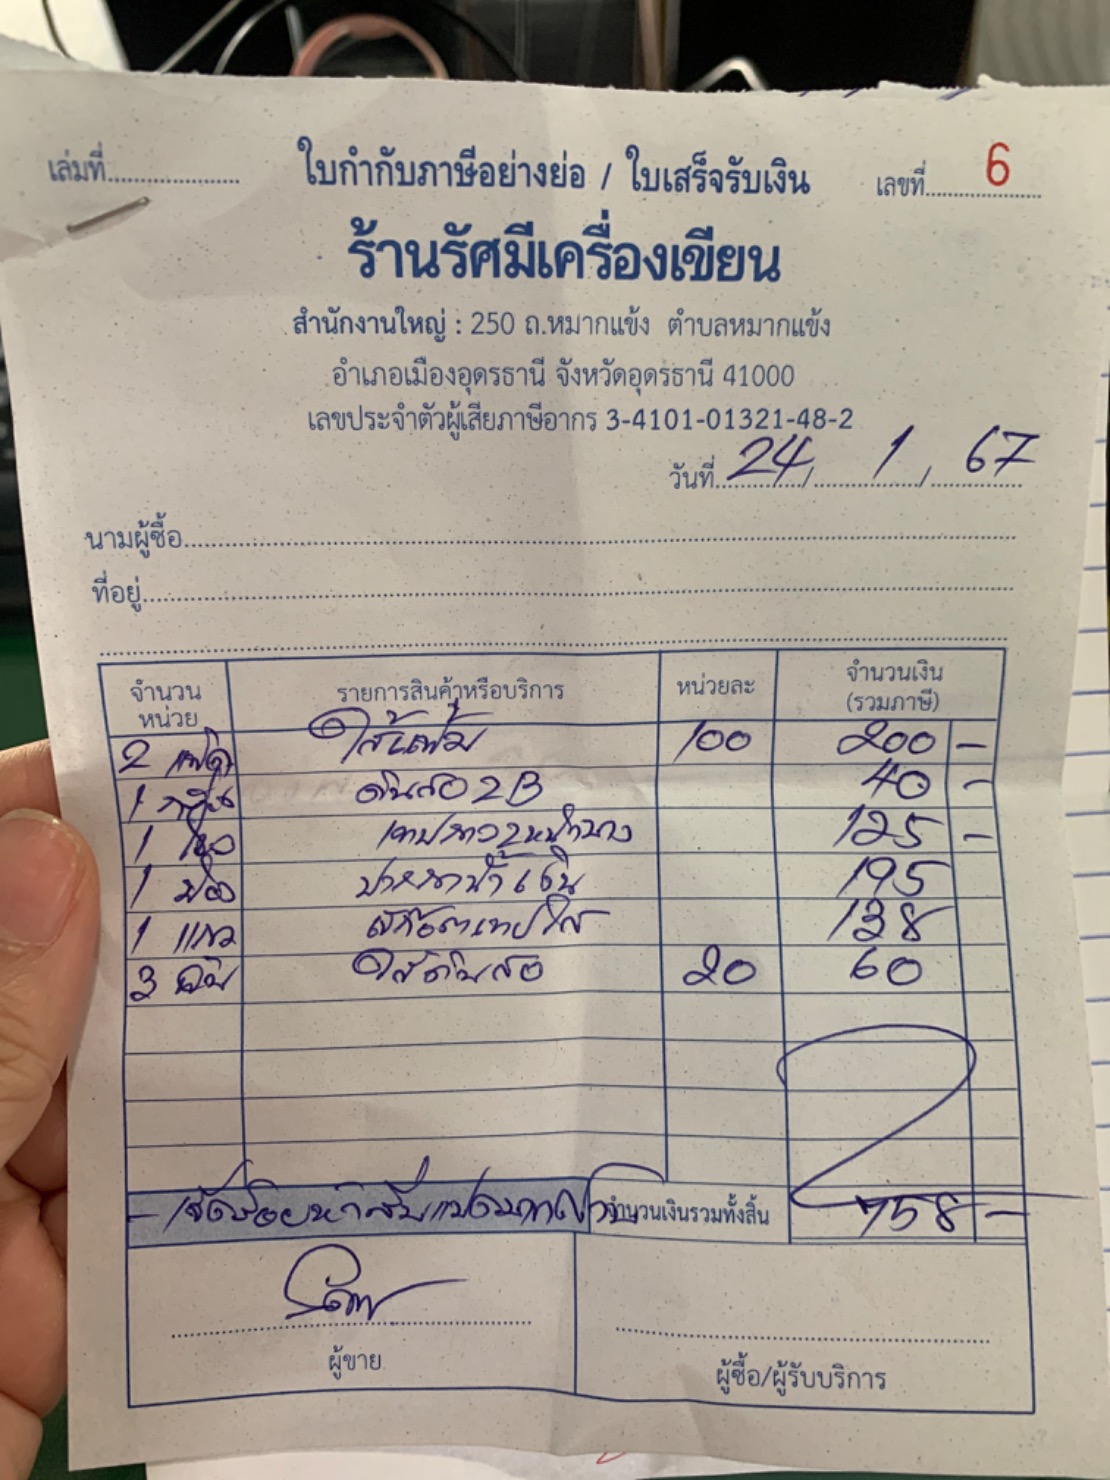 เล่มที่.................... ใบกำกับภาษีอย่างย่อ / ใบเสร็จรับเงิน เลขที่.................... 6
ร้านรัศมีเครื่องเขียน
สำนักงานใหญ่ : 250 ถ.หมากแข้ง ตำบลหมากแข้ง
อำเภอเมืองอุดรธานี จังหวัดอุดรธานี 41000
เลขประจำตัวผู้เสียภาษีอากร 3-4101-01321-48-2
วันที่ 24 / 1 / 67
นามผู้ซื้อ
ที่อยู่
จำนวนหน่วย รายการสินค้าหรือบริการ หน่วยละ จำนวนเงิน (รวมภาษี)
2 ไส้แฟ้ม 100 200 -
1 ดินสอ 2B 40 -
1 เทปกาว 2 หน้าบาง 125 -
1 ปากกาน้ำเงิน 195
1 สก๊อตเทปใส 138
3 ไส้ดินสอ 20 60
- เจ็ดร้อยห้าสิบแปดบาทถ้วน จำนวนเงินรวมทั้งสิ้น 758 -
ผู้ขาย
ผู้ซื้อ/ผู้รับบริการ